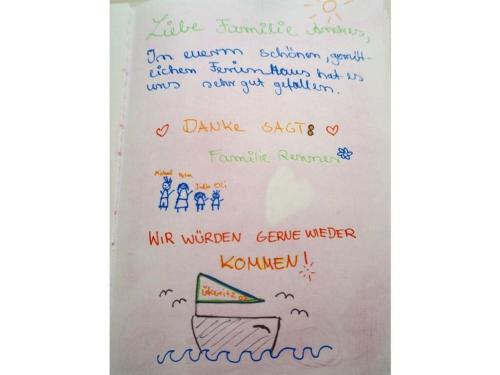 Liebe Familie
In euerm schönen, gemüt-
lichen Ferienhaus hat es
uns sehr gut gefallen.
DANKE SAGT:
Familie Renner
Michael
Julia Oli
WIR WÜRDEN GERNE WIEDER
KOMMEN!
Ückeritz